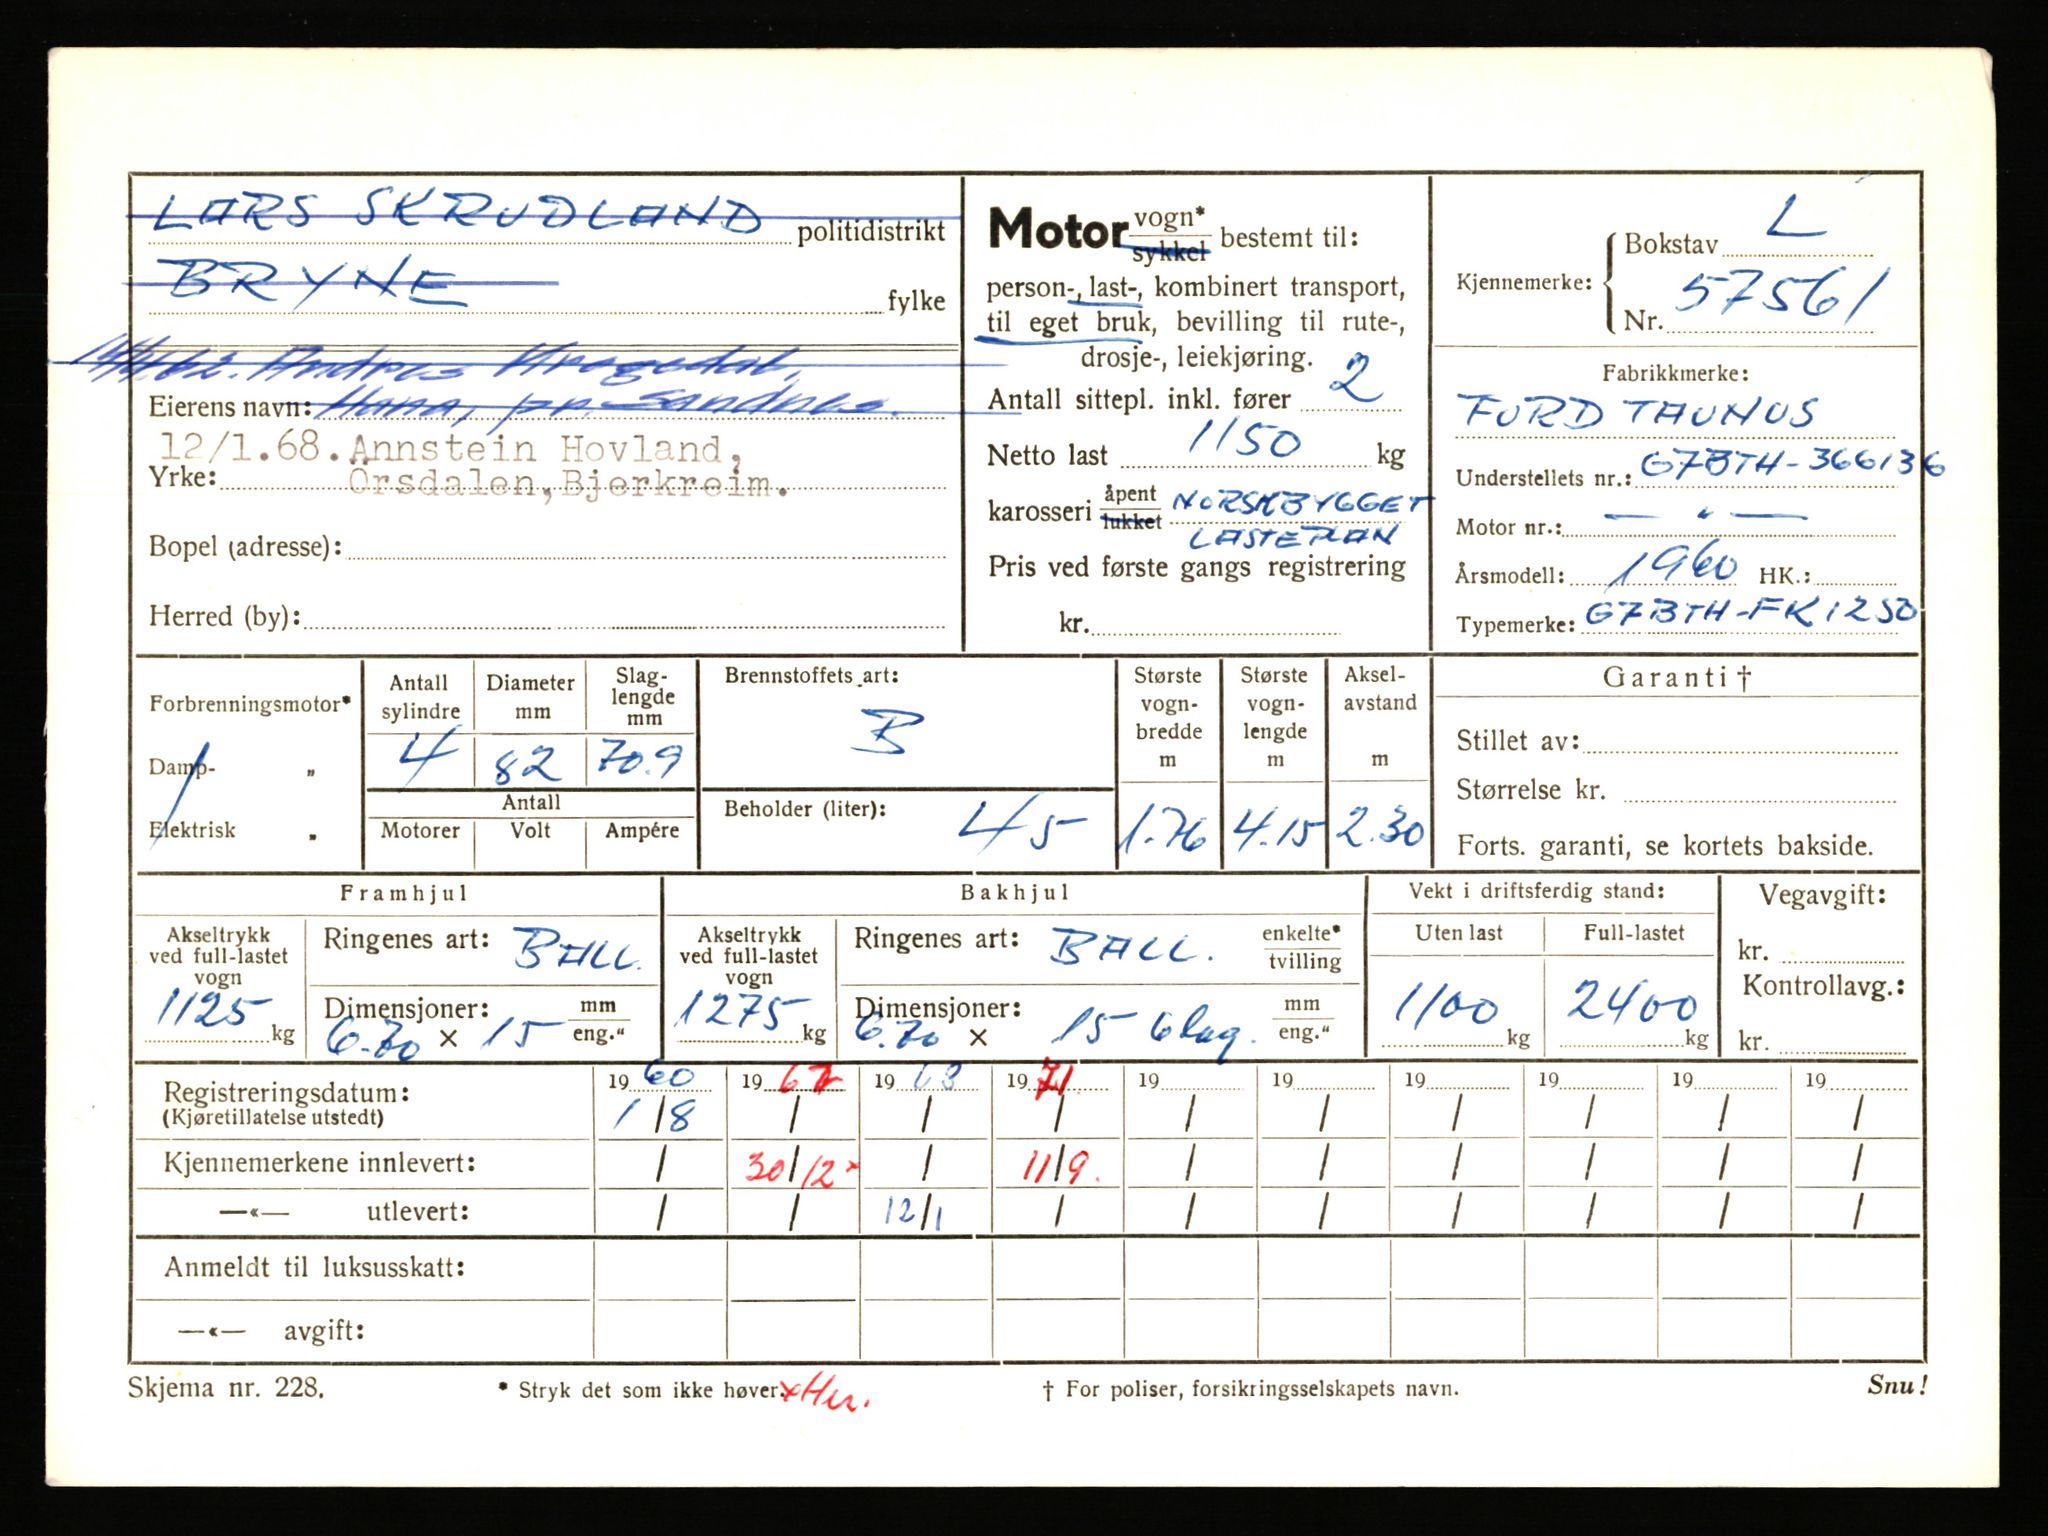 LARS SKRUDLAND politidistrikt
BRYNE fylke
Andres
Eierens navn: Hana, pr. Sandnes.
12/1.68. Annstein Hovland,
Yrke: Örsdalen, Bjerkreim.
Bopel (adresse):
Herred (by):
Motor vogn* sykkel bestemt til:
person-, last-, kombinert transport,
til eget bruk, bevilling til rute-,
drosje-, leiekjøring.
Antall sittepl. inkl. fører 2
Netto last 1150 kg
karosseri åpent lukket NORSKBYGGET
LASTEPLAN
Pris ved første gangs registrering
kr.
Kjennemerke: Bokstav L
Nr. 57561
Fabrikkmerke:
FORD TAUNUS
Understellets nr.: G7BTH-366136
Motor nr.: — " —
Årsmodell: 1960 HK.:
Typemerke: G7BTH-FK1250
Forbrenningsmotor*
Damp- „
Elektrisk „
Antall sylindre 4
Diameter mm 82
Slag-
lengde
mm 70.9
Antall
Motorer Volt Ampére
Brennstoffets art:
B
Beholder (liter): 45
Største
vogn-
bredde
m
1.76
Største
vogn-
lengde
m
4.15
Aksel-
avstand
m
2.30
Garanti †
Stillet av:
Størrelse kr.
Forts. garanti, se kortets bakside.
Framhjul
Akseltrykk
ved full-lastet
vogn
1125 kg
Ringenes art: BALL.
Dimensjoner: mm
6.70 × 15 eng."
Bakhjul
Akseltrykk
ved full-lastet
vogn
1275 kg
Ringenes art: BALL. enkelte* tvilling
Dimensjoner: mm
6.70 × 15 6 lag. eng."
Vekt i driftsferdig stand:
Uten last Full-lastet
1100 kg 2400 kg
Vegavgift:
kr.
Kontrollavg.:
kr.
Registreringsdatum: 1960 1967 1968 1971 19 19 19 19 19 19
(Kjøretillatelse utstedt) 1/8 / / / / / / / / /
Kjennemerkene innlevert: / 30/12 × / 11/9. / / / / / /
—«— utlevert: / / 12/1 / / / / / / /
Anmeldt til luksusskatt:
—«— avgift:
Skjema nr. 228. * Stryk det som ikke høver. † For poliser, forsikringsselskapets navn. Snu!